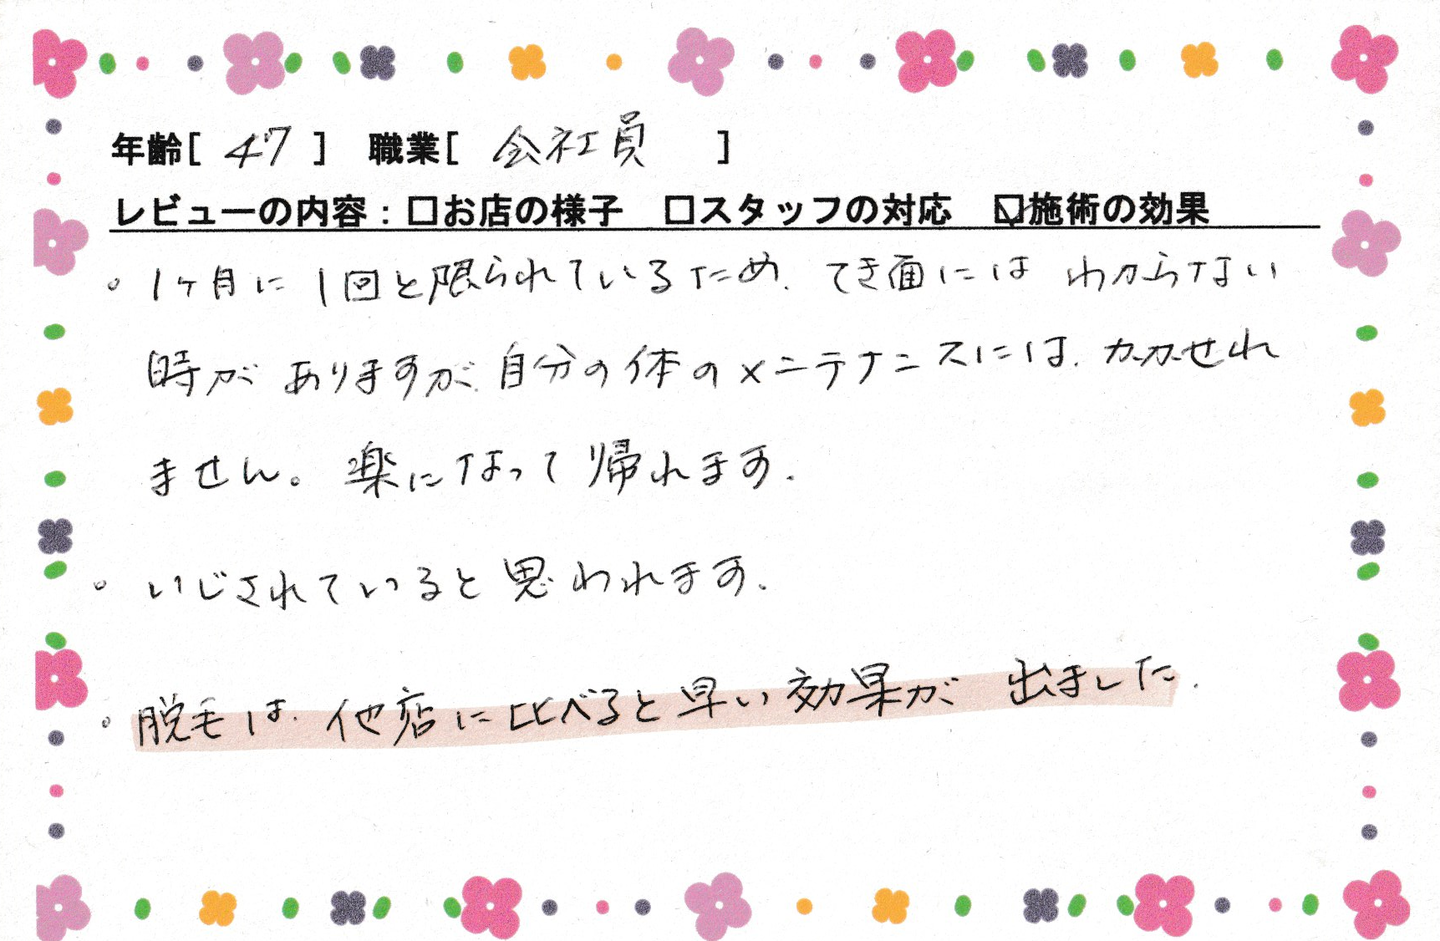 年齢[ 47 ] 職業[ 会社員 ]
レビューの内容：□お店の様子 □スタッフの対応 ☑施術の効果
。1ヶ月に1回と限られているため、てき面にはわからない
時がありますが、自分の体のメンテナンスには、かかせれ
ません。楽になって帰れます.
。いじされていると思われます.
。脱毛は、他店に比べると早い効果が出ました.